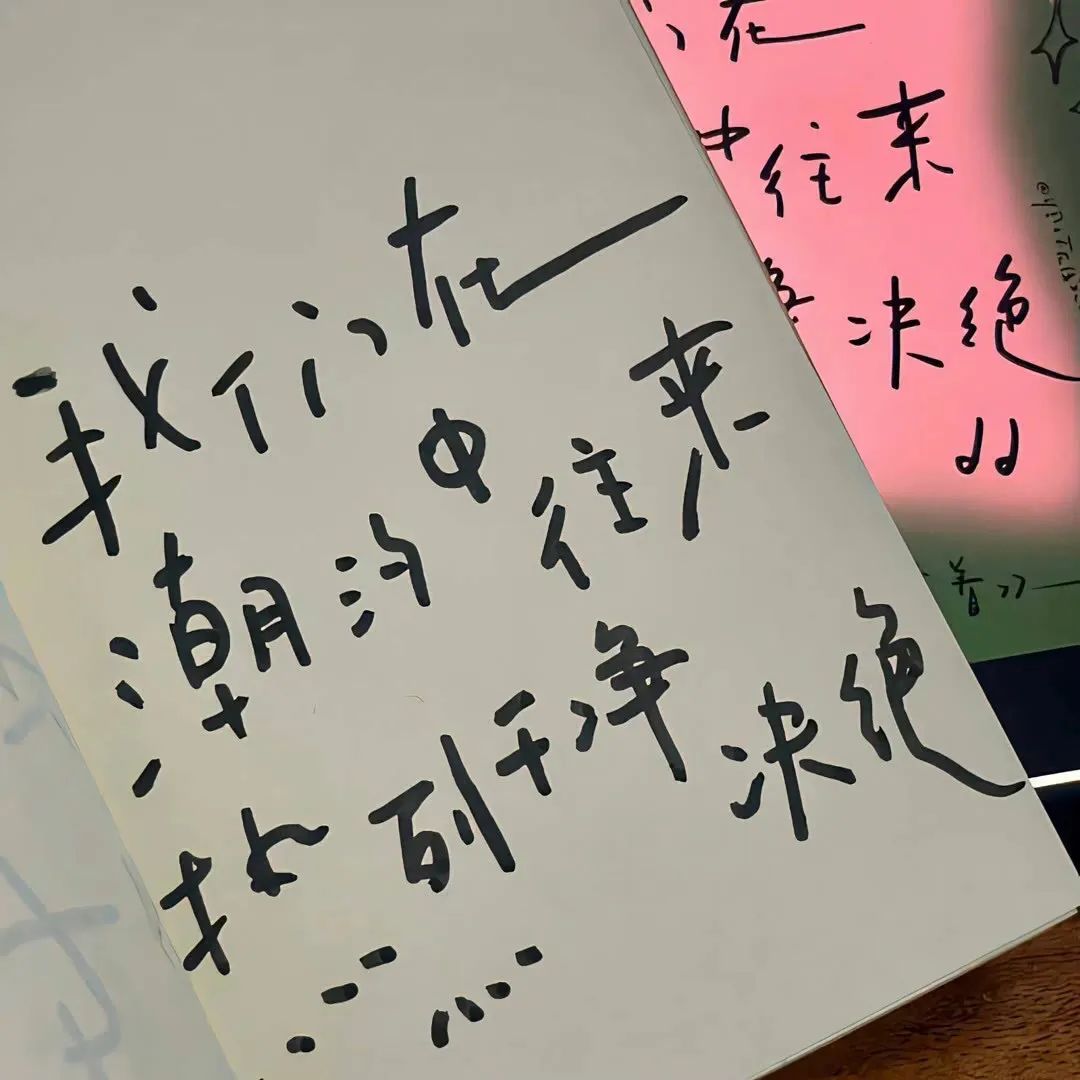 我们在
潮汐中往来
热烈干净决绝
在
中往来
决绝
着